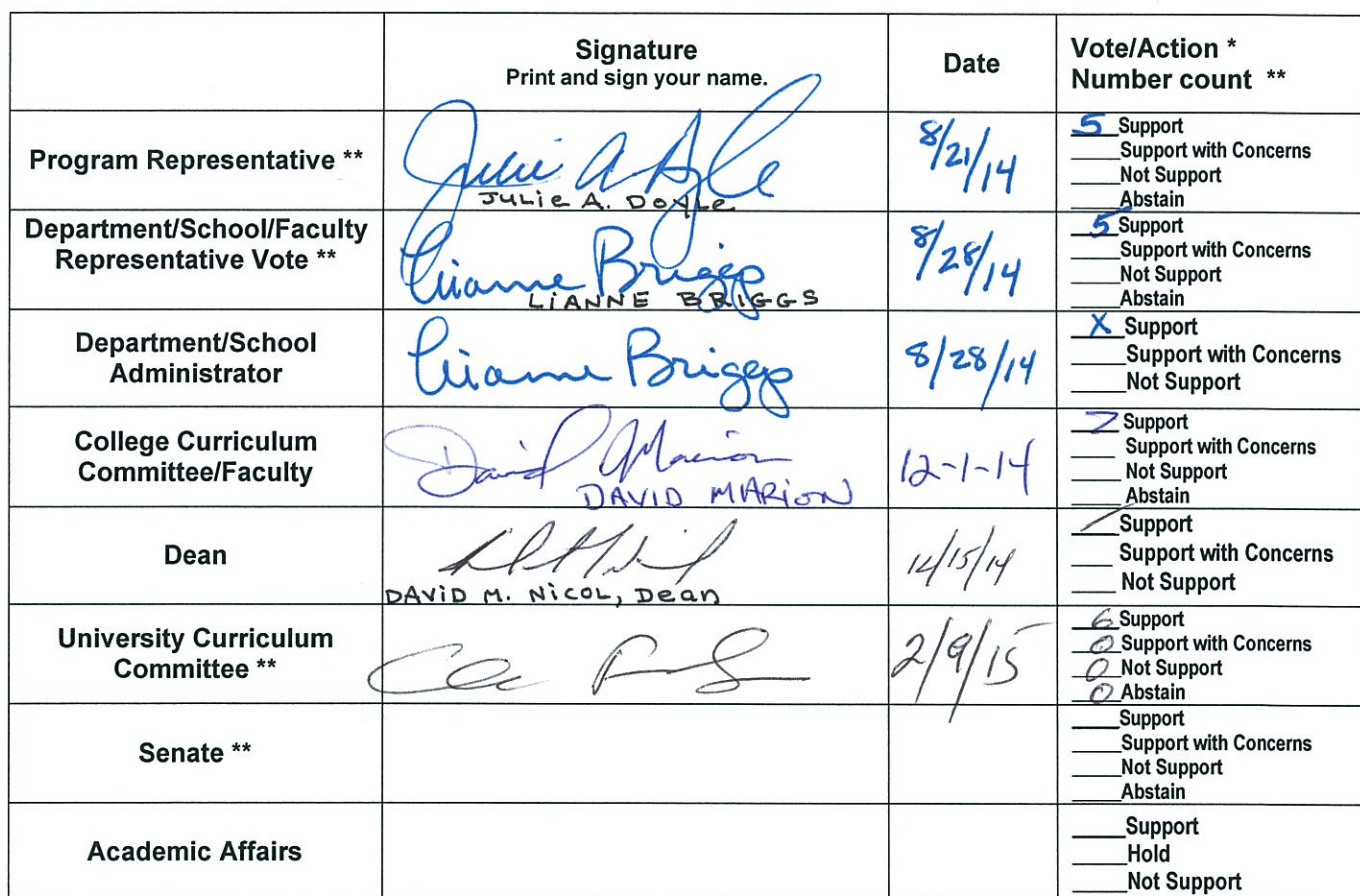 Signature
Print and sign your name.
Date
Vote/Action *
Number count **
Program Representative **
Julie A Doyle
JULIE A. DOYLE
8/21/14
5 Support
Support with Concerns
Not Support
Abstain
Department/School/Faculty
Representative Vote **
Lianne Briggs
LIANNE BRIGGS
8/28/14
5 Support
Support with Concerns
Not Support
Abstain
Department/School
Administrator
Lianne Briggs
8/28/14
X Support
Support with Concerns
Not Support
College Curriculum
Committee/Faculty
David Marion
DAVID MARION
12-1-14
7 Support
Support with Concerns
Not Support
Abstain
Dean
DAVID M. NICOL, Dean
12/15/14
/ Support
Support with Concerns
Not Support
University Curriculum
Committee **
2/9/15
6 Support
0 Support with Concerns
0 Not Support
0 Abstain
Senate **
Support
Support with Concerns
Not Support
Abstain
Academic Affairs
Support
Hold
Not Support